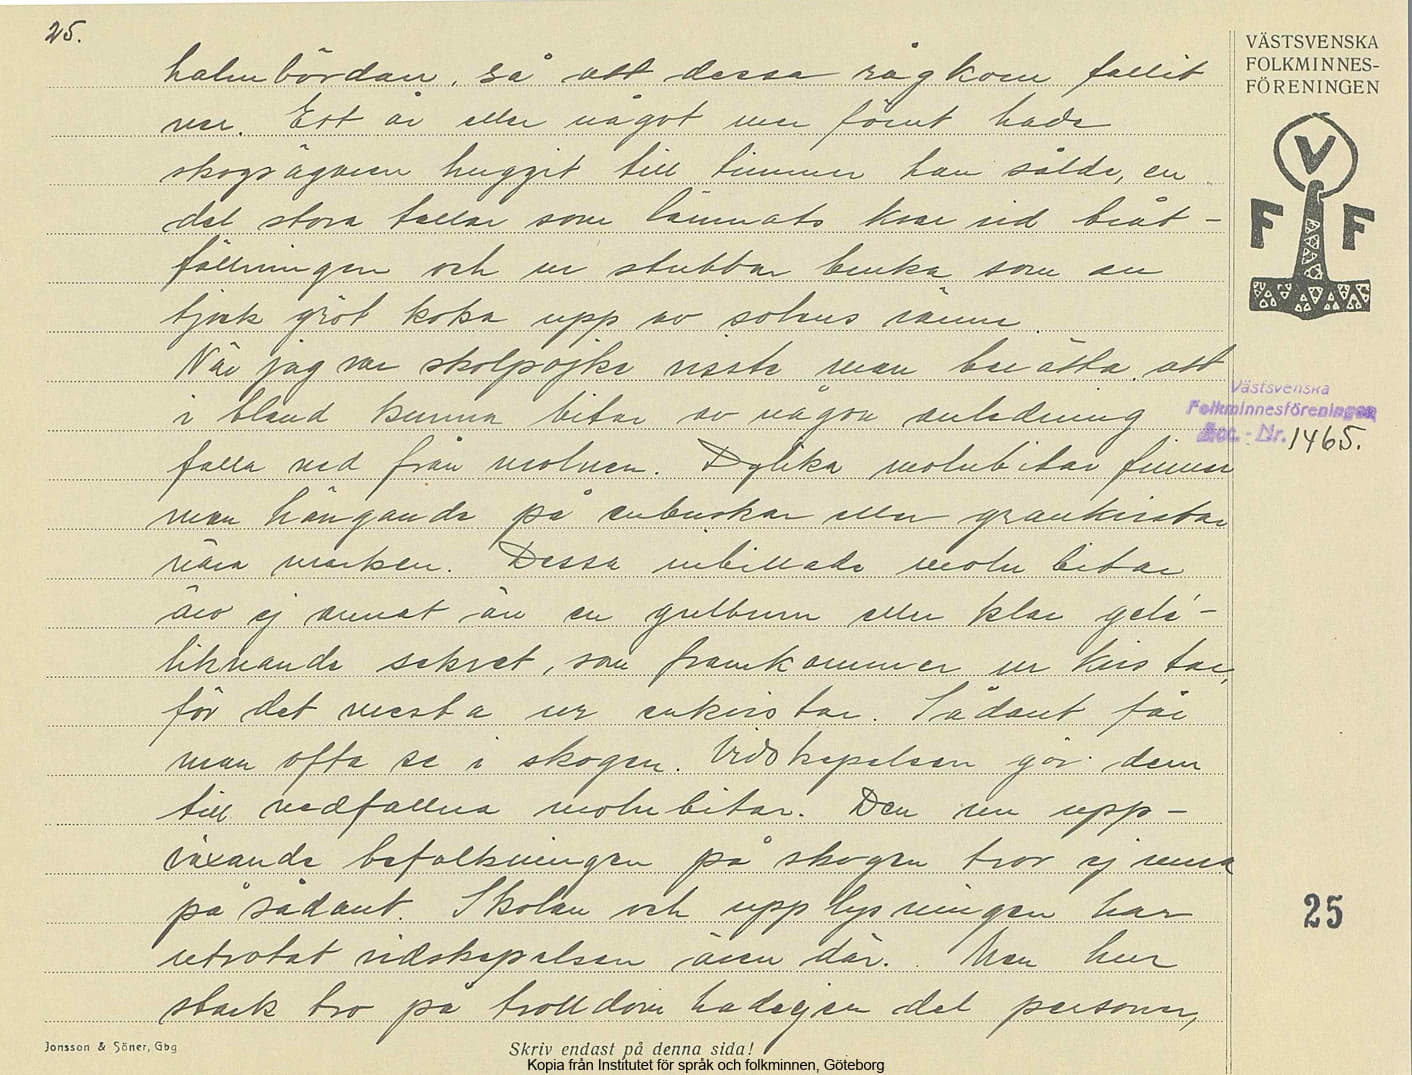 25.
VÄSTSVENSKA
FOLKMINNES-
FÖRENINGEN
V
F F
halmbördan, så att dessa rågkorn fallit
ner. Ett år eller något mer förut hade
skogsägaren huggit till timmer han sålde, en
del stora tallar som lämnats kvar vid bråt-
fällningen och ur stubbar bruka som en
tjock gröt koka upp av solens värme.
När jag var skolpojke visste man berätta att
i bland kunna bitar av någon anledning
falla ned från molnen. Dylika molnbitar finner
man hängande på enbuskar eller grankvistar
nära marken. Dessa inbillade moln bitar
äro ej annat än en gulbrun eller klar gelé-
liknande sekret, som framkommer ur kvistar,
för det mesta ur enkvistar. Sådant får
man ofta se i skogen. Vidskepelsen gör dem
till nedfallna molnbitar. Den nu upp-
växande befolkningen på skogen tror ej mera
på sådant. Skolan och upplysningen har
utrotat vidskepelsen även där. Men hur
stark tro på trolldom hade ej en del personer,
Västsvenska
Folkminnesföreningen
Acc. - Nr. 1465.
25
Jonsson & Söner, Gbg
Skriv endast på denna sida!
Kopia från Institutet för språk och folkminnen, Göteborg